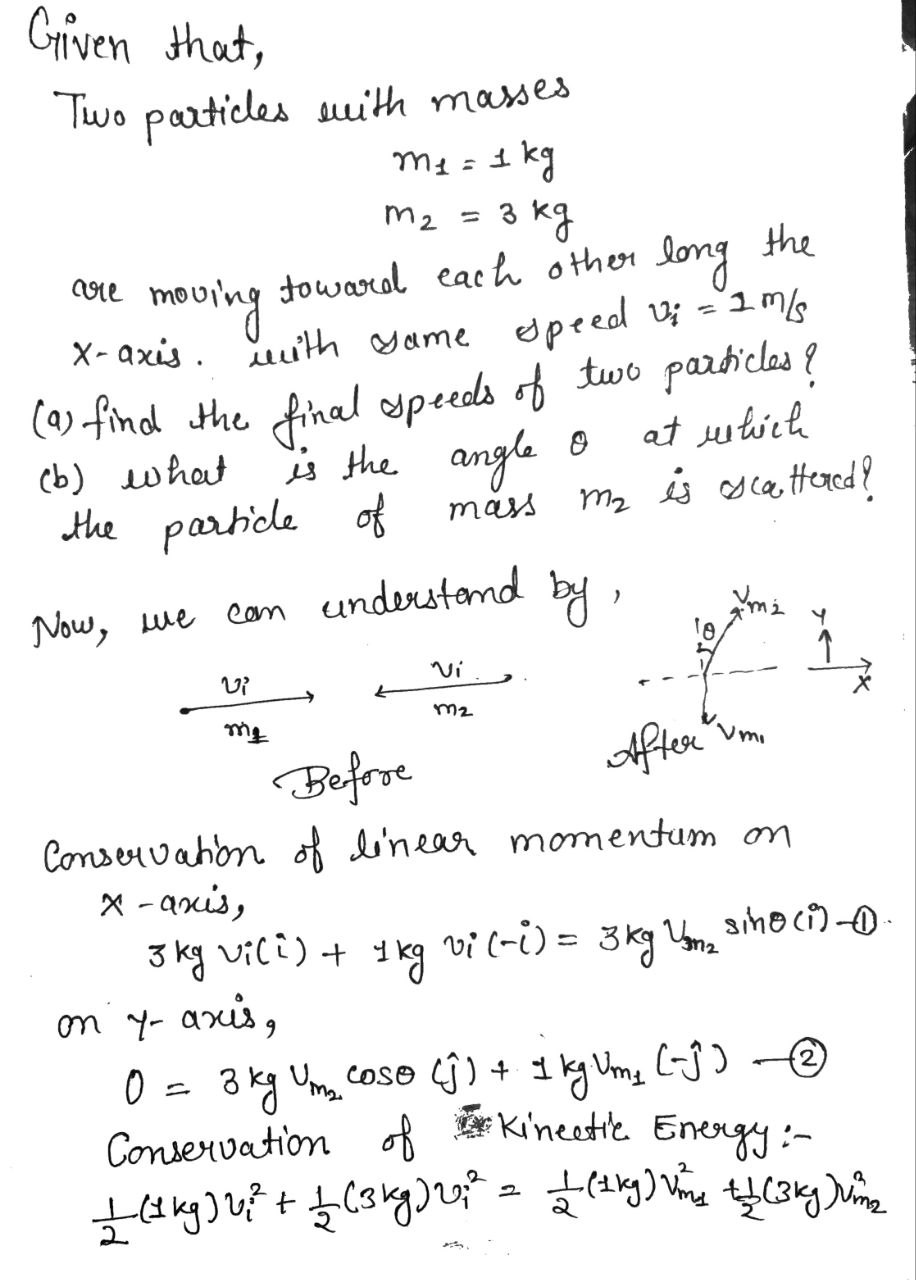 Given that,
Two particles with masses
m1 = 1 kg
m2 = 3 kg
are moving toward each other long the
x-axis. with same speed vi = 1 m/s
(a) find the final speeds of two particles?
(b) what is the angle θ at which
the particle of mass m2 is scattered?
Now, we can understand by,
vi
m1
vi
m2
Before
θ
Vm2
Y
X
Vm1
After
Conservation of linear momentum on
x-axis,
3 kg vi(î) + 1 kg vi(-i) = 3 kg Vm2 sinθ (î) -①
on y-axis,
0 = 3 kg Vm2 cosθ (ĵ) + 1 kg Vm1 (-ĵ) -②
Conservation of Kineetic Energy :-
1/2 (1kg) vi² + 1/2 (3kg) vi² = 1/2 (1kg) Vm1² + 1/2 (3kg) Vm2²